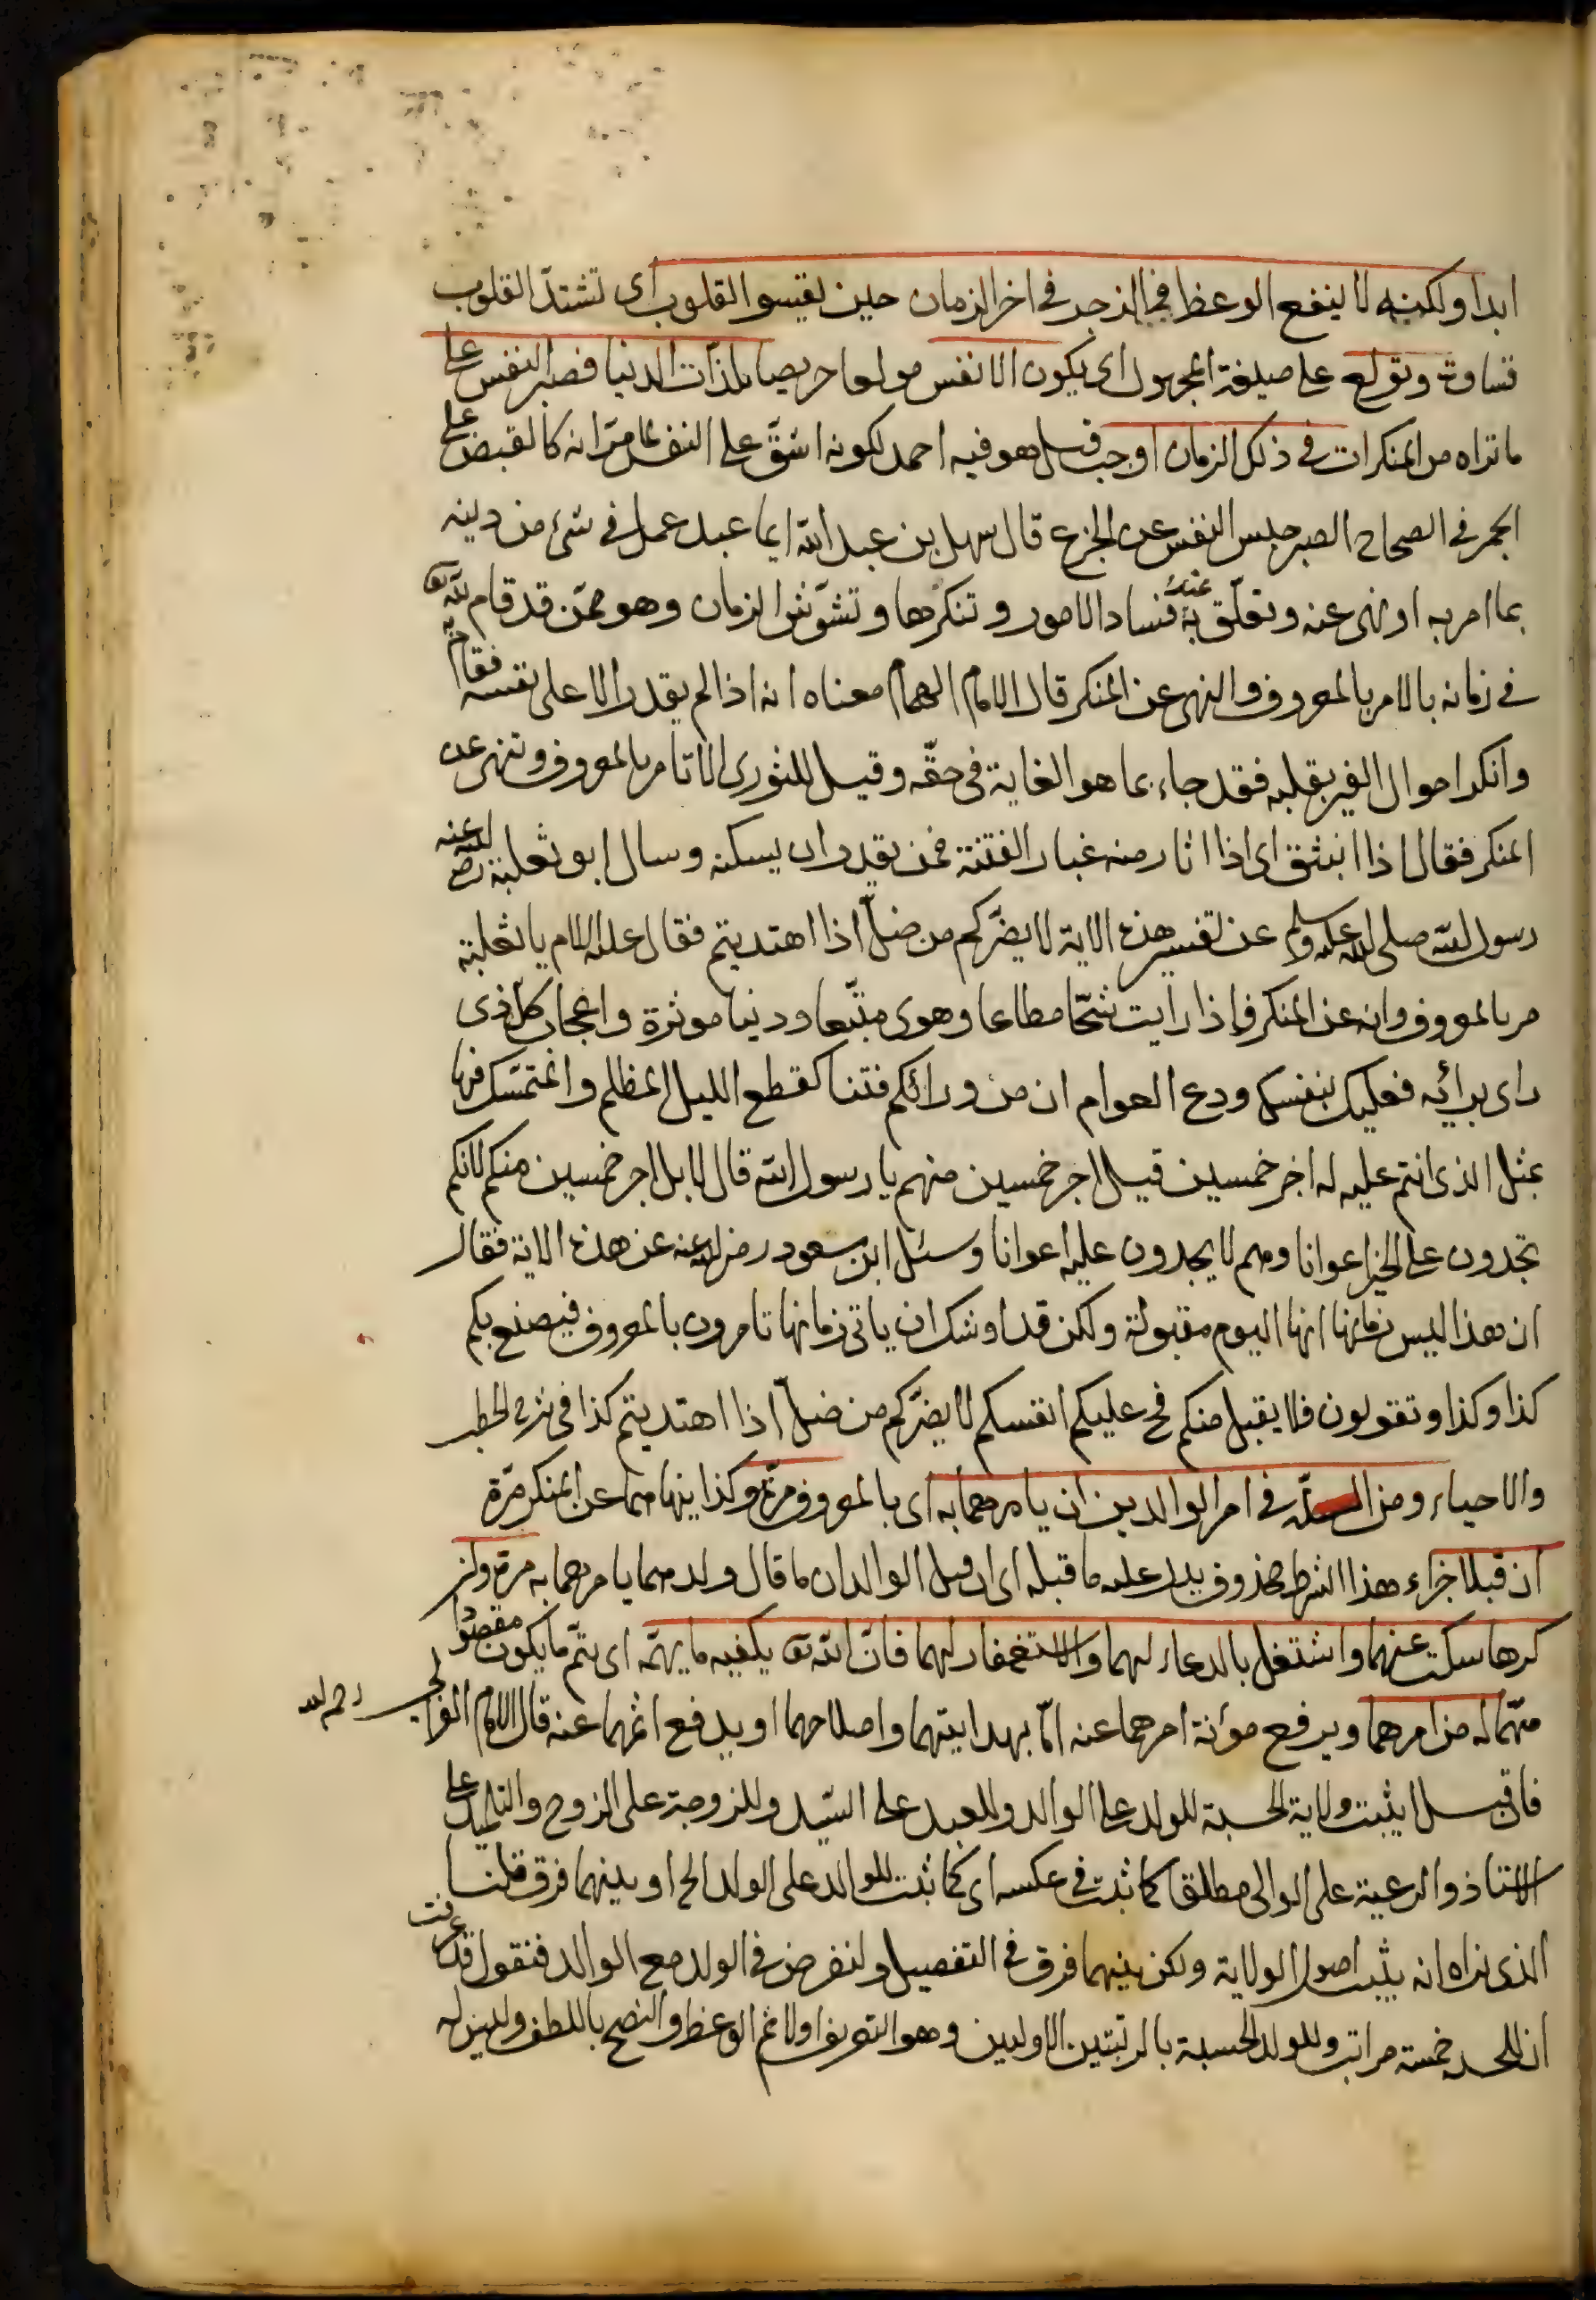 ابدا ولكنه لا ينفع الوعظ في الزجر في اخر الزمان حين يقسو القلوب اى تشتدّ القلوب
قساوة وتولع على صيغة المجهول اى يكون الانفس مولعا حريصا بلذّات الدنيا فصبر النفس على
ما تراه من المنكرات في ذلك الزمان اوجب قيل هو فيه احمد لكونه اشقّ على النفس لما مرّ انه كالقبض على
الجمر في الصحاح الصبر حبس النفس عن الجزع قال سهل بن عبد الله ايما عبد عمل في شئ من دينه
بما امر به او نهى عنه وتعلّق به عند فساد الامور وتنكرها وتشوّش الزمان وهو ممّن قد قام لله تعالى
في زمانه بالامر بالمعروف والنهى عن المنكر قال الامام الهمام معناه انه اذا لم يقدر الا على نفسه فقام به
وانكر احوال الغير بقلبه فقد جاء بما هو الغاية في حقّه وقيل للثورى الا تامر بالمعروف وتنهى عن
المنكر فقال اذا انبثق اى اذا اثار منه غبار الفتنة فمن يقدر ان يسكنه وسال ابو ثعلبة رضى الله عنه
رسول الله صلى الله عليه وسلم عن تفسير هذه الاية لا يضرّكم من ضلّ اذا اهتديتم فقال عليه السلام يا ثعلبة
مر بالمعروف وانه عن المنكر فاذا رايت شحّا مطاعا وهوى متّبعا ودنيا موثرة واعجاب كل ذى
راى برائه فعليك بنفسك ودع العوام ان من ورائكم فتنا كقطع الليل المظلم والمتمسّك فيها
بمثل الذى انتم عليه له اجر خمسين قيل اجر خمسين منهم يا رسول الله قال لا بل اجر خمسين منكم لانكم
تجدون على الخير اعوانا وهم لا يجدون عليه اعوانا وسئل ابن مسعود رضى الله عنه عن هذه الاية فقال
ان هذا ليس زمانها انها اليوم مقبولة ولكن قد اوشك ان ياتى زمانها تامرون بالمعروف فيصنع بكم
كذا وكذا وتقولون فلا يقبل منكم فح عليكم انفسكم لا يضرّكم من ضلّ اذا اهتديتم كذا في شرح الخطب
والاحياء ومن السنّة في امر الوالدين ان يامرهما به اى بالمعروف مرّة وكذا ينهاهما عن المنكر مرّة
ان قبلا جزاء هذا الشرط محذوف يدل عليه ما قبله اى ان قبل الوالدان ما قال ولدهما يامرهما به مرة وان
كرها سكت عنهما واشتغل بالدعاء لهما والاستغفار لهما فانّ الله تعالى يكفيه ما يهمّه اى يتمّ ما يكون مقصودا
مهّما له من امرهما ويرفع مؤنة امرهما عنه امّا بهدايتهما واصلاحهما او يدفع اثمهما عنه قال الامام الغزالى رحمه الله
فان قيل ايثبت ولاية الحسبة للولد على الوالد وللعبد على السيّد وللزوجة على الزوج والتلميذ على
الاستاذ والرعية على الوالى مطلقا كما ثبت في عكسه اى كما ثبت للوالد على الولد الخ او بينهما فرق قلنا
الذى نراه انه يثبت اصول الولاية ولكن بينهما فرق في التفصيل ولنفرض في الولد مع الوالد فنقول قد عرفت
ان للحسبة خمسة مراتب وللولد الحسبة بالرتبتين الاوليين وهو التعريف اولا ثم الوعظ والنصح باللطف وليس له